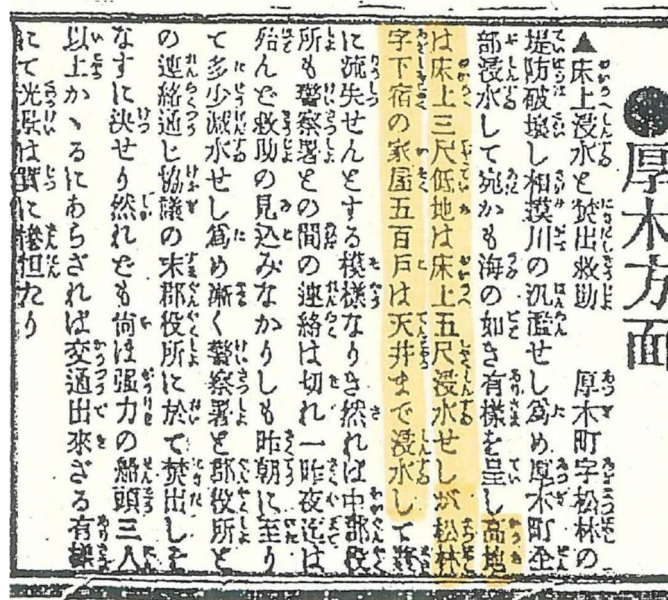 ●厚木方面
▲床上浸水と焚出救助　厚木町字松林の
堤防破壊し相摸川の氾濫せし為め厚木町全
部浸水して宛かも海の如き有様を呈し高地
は床上三尺低地は床上五尺浸水せしが松林
字下宿の家屋五百戸は天井まで浸水して将
に流失せんとする模様なりき然れば中郡役
所も警察署との間の連絡は切れ一昨夜迄は
殆んど救助の見込みなかりしも昨朝に至り
て多少減水せし為め漸く警察署と郡役所と
の連絡通じ協議の末郡役所に於て焚出しを
なすに決せり然れども尚ほ強力の船頭三人
以上かゝるにあらざれば交通出來ざる有様
にて光景は実に惨怛たり